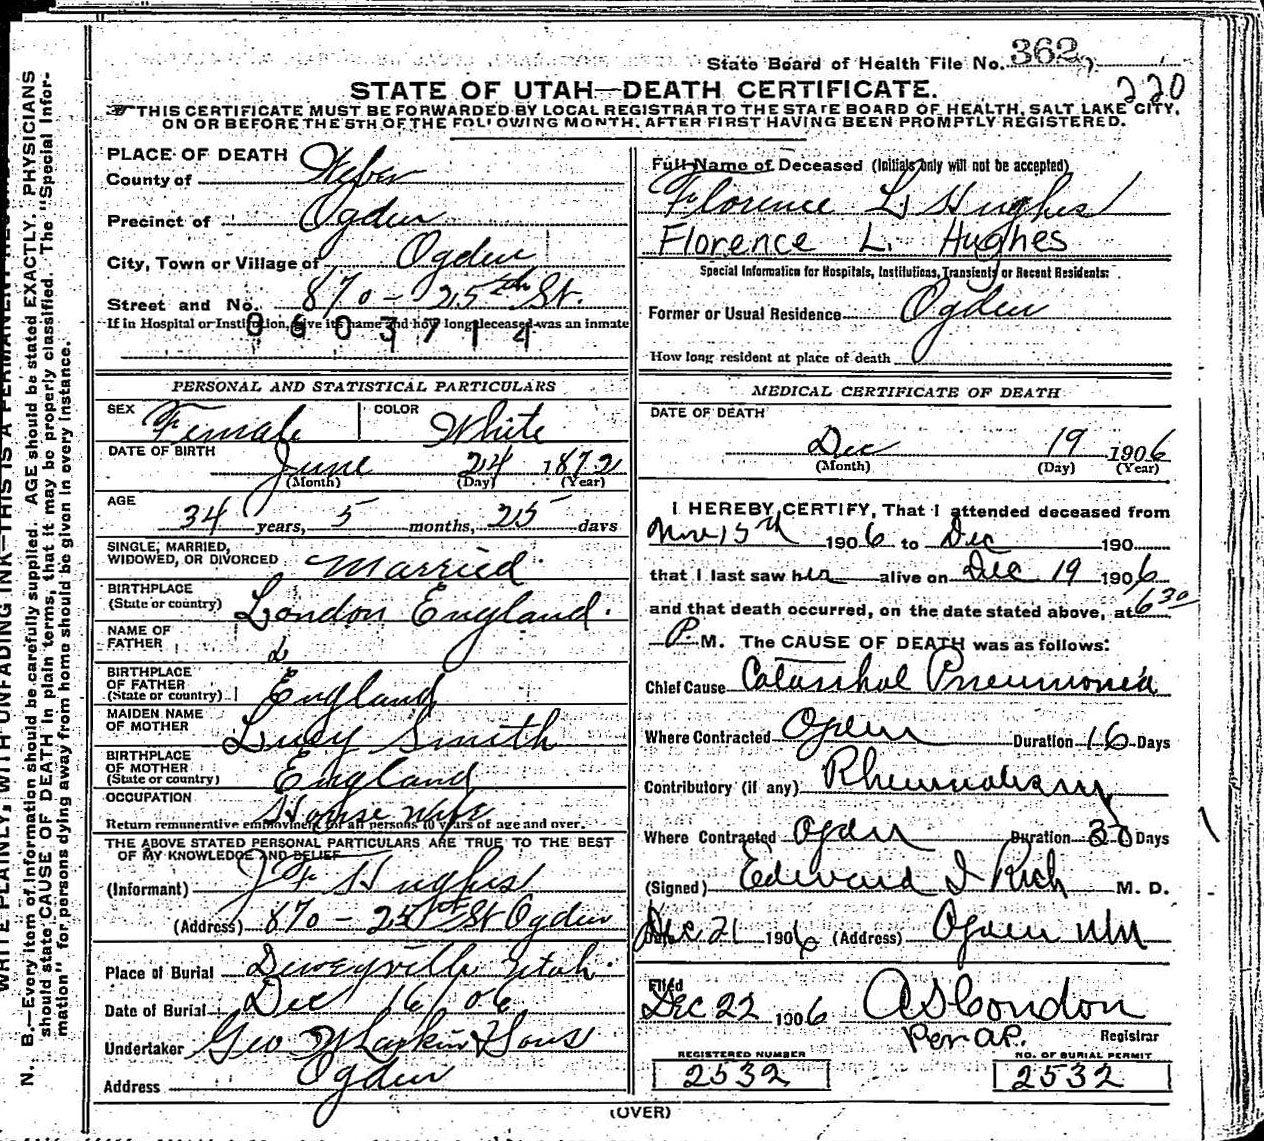 State Board of Health File No. 362
220
STATE OF UTAH—DEATH CERTIFICATE.
THIS CERTIFICATE MUST BE FORWARDED BY LOCAL REGISTRAR TO THE STATE BOARD OF HEALTH, SALT LAKE CITY,
ON OR BEFORE THE 5TH OF THE FOLLOWING MONTH, AFTER FIRST HAVING BEEN PROMPTLY REGISTERED.
WRITE PLAINLY, WITH UNFADING INK—THIS IS A PERMANENT RECORD
N. B.—Every item of information should be carefully supplied. AGE should be stated EXACTLY. PHYSICIANS
should state CAUSE OF DEATH in plain terms, that it may be properly classified. The "Special Infor-
mation" for persons dying away from home should be given in every instance.
PLACE OF DEATH
County of Weber
Precinct of Ogden
City, Town or Village of Ogden
Street and No. 870 - 25th St.
If in Hospital or Institution, give its name and how long deceased was an inmate
0603714
PERSONAL AND STATISTICAL PARTICULARS
SEX Female COLOR White
DATE OF BIRTH June 24 1872
(Month) (Day) (Year)
AGE 34 years, 5 months, 25 days
SINGLE, MARRIED,
WIDOWED, OR DIVORCED Married
BIRTHPLACE
(State or country) London England.
NAME OF
FATHER
BIRTHPLACE
OF FATHER
(State or country) England
MAIDEN NAME
OF MOTHER Lucy Smith
BIRTHPLACE
OF MOTHER
(State or country) England
OCCUPATION House wife
Return remunerative employment for all persons 10 years of age and over.
THE ABOVE STATED PERSONAL PARTICULARS ARE TRUE TO THE BEST
OF MY KNOWLEDGE AND BELIEF
(Informant) Hughes
(Address) 870 - 25th St Ogden
Place of Burial Deweyville Utah.
Date of Burial Dec 16/06
Undertaker Geo W Larkin & Sons
Address Ogden
Full Name of Deceased (Initials only will not be accepted)
Florence L Hughes
Florence L. Hughes
Special Information for Hospitals, Institutions, Transients or Recent Residents:
Former or Usual Residence Ogden
How long resident at place of death
MEDICAL CERTIFICATE OF DEATH
DATE OF DEATH
Dec 19 1906
(Month) (Day) (Year)
I HEREBY CERTIFY, That I attended deceased from
Nov 15th 1906 to Dec 190
that I last saw her alive on Dec 19 1906
and that death occurred, on the date stated above, at 6 30
P. M. The CAUSE OF DEATH was as follows:
Chief Cause Catarrhal Pneumonia
Where Contracted Ogden Duration 16 Days
Contributory (if any) Rheumatism
Where Contracted Ogden Duration 30 Days
(Signed) Edward I Rich M. D.
Dec 21 1906 (Address) Ogden
Filed
Dec 22 1906 A S Condon
Per A.P. Registrar
REGISTERED NUMBER NO. OF BURIAL PERMIT
2532 2532
(OVER)